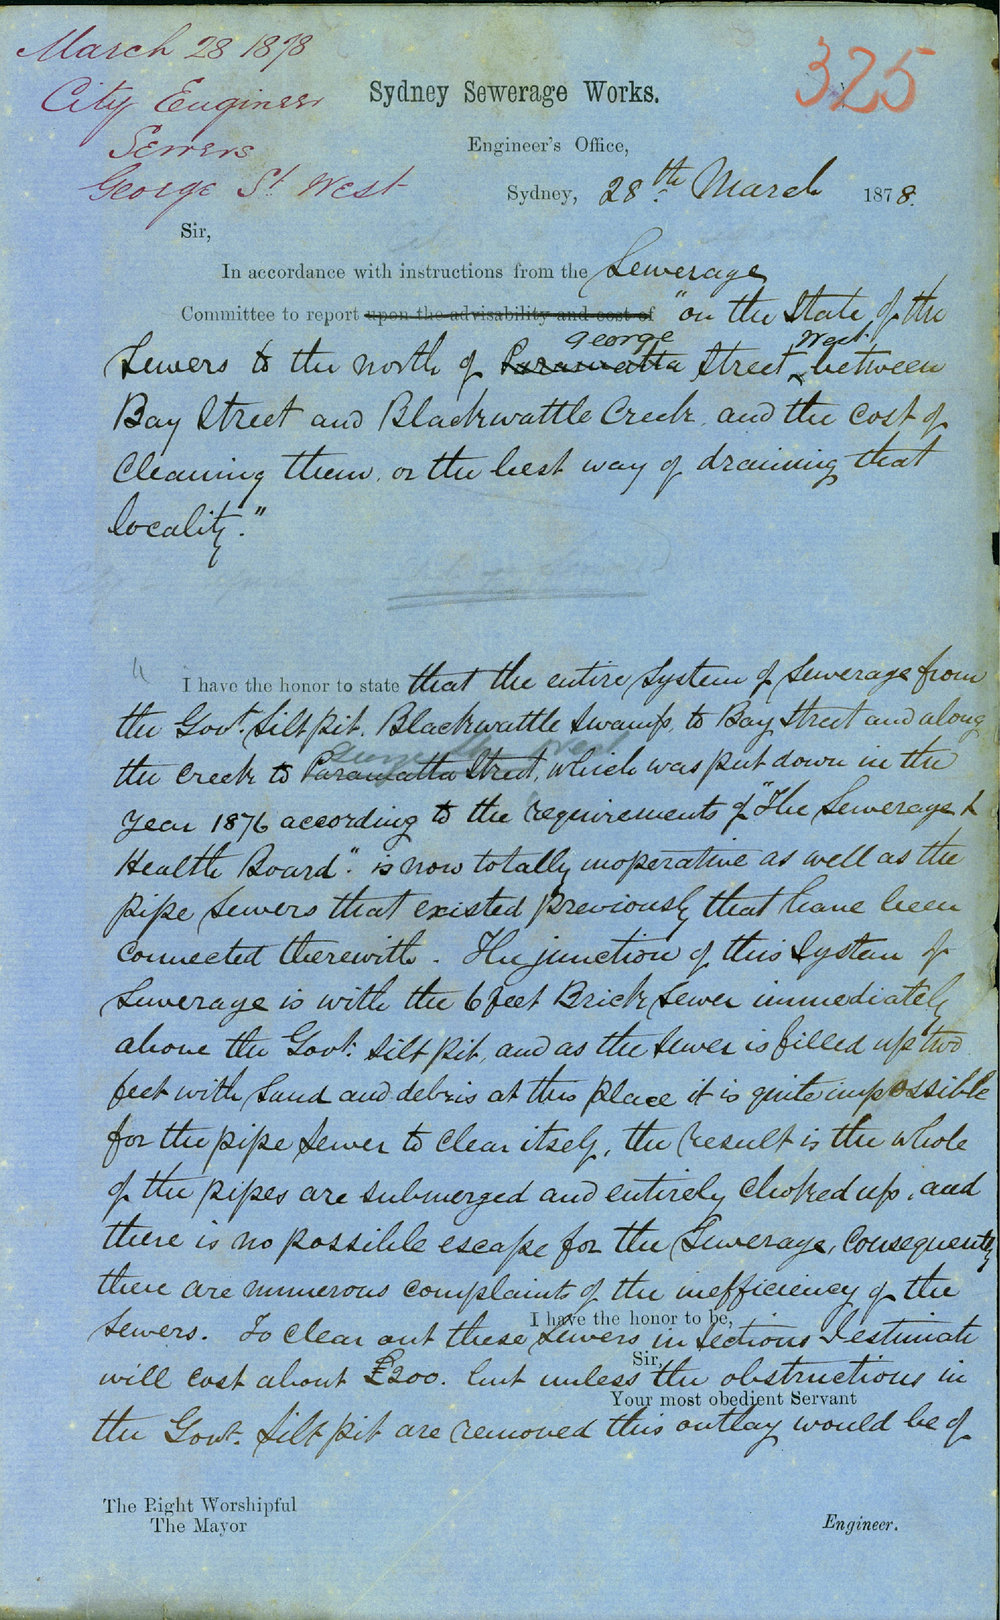 March 28 1878
City Engineer
Sewers
George St West
325
Sydney Sewerage Works.
Engineer's Office,
Sydney, 28th March 1878.
Sir,
In accordance with instructions from the Sewerage
Committee to report upon the advisability and cost of "on the State of the
George West
Sewers to the north of Paramatta Street, between
Bay Street and Blackwattle Creek, and the cost of
Cleaning them, or the best way of draining that
locality."
I have the honor to state that the entire System of Sewerage from
the Govt. Silt pit, Blackwattle Swamp, to Bay Street and along
George St West
the Creek to Paramatta Street, which was put down in the
year 1876 according to the requirements of "The Sewerage &
Health Board" is now totally inoperative as well as the
pipe Sewers that existed previously that have been
connected therewith. The junction of this System of
Sewerage is with the 6 feet Brick Sewer immediately
above the Govt. Silt pit, and as the Sewer is filled up two
feet with Sand and debris at this place it is quite impossible
for the pipe Sewer to clear itself, the result is the whole
of the pipes are submerged and entirely choked up, and
there is no possible escape for the Sewerage, Consequently
there are numerous complaints of the inefficiency of the
I have the honor to be,
Sewers. To clear out these Sewers in Sections I estimate
Sir,
will cost about £200. but unless the obstructions in
Your most obedient Servant
the Govt. Silt pit are removed this outlay would be of
The Right Worshipful
The Mayor
Engineer.